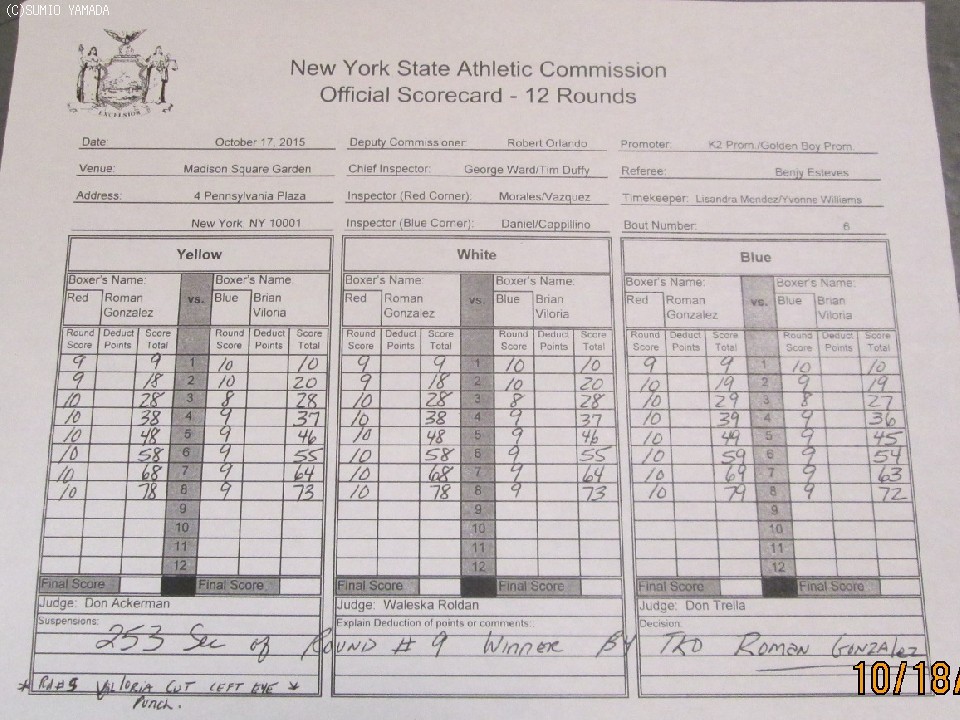 (C)SUMIO YAMADA
EXCELSIOR
New York State Athletic Commission
Official Scorecard - 12 Rounds
Date: October 17, 2015 Deputy Commissioner: Robert Orlando Promoter: K2 Prom./Golden Boy Prom.
Venue: Madison Square Garden Chief Inspector: George Ward/Tim Duffy Referee: Benjy Esteves
Address: 4 Pennsylvania Plaza Inspector (Red Corner): Morales/Vazquez Timekeeper: Lisandra Mendez/Yvonne Williams
New York, NY 10001 Inspector (Blue Corner): Daniel/Cappillino Bout Number: 6
Yellow White Blue
Boxer's Name: Boxer's Name Boxer's Name: Boxer's Name: Boxer's Name: Boxer's Name:
Red Roman vs. Blue Brian Red Roman vs. Blue Brian Red Roman vs. Blue Brian
Gonzalez Viloria Gonzalez Viloria Gonzalez Viloria
Round Deduct Score Round Deduct Score Round Deduct Score Round Deduct Score Round Deduct Score Round Deduct Score
Score Points Total Score Points Total Score Points Total Score Points Total Score Points Total Score Points Total
9 9 1 10 10 9 9 1 10 10 9 9 1 10 10
9 18 2 10 20 9 18 2 10 20 10 19 2 9 19
10 28 3 8 28 10 28 3 8 28 10 29 3 8 27
10 38 4 9 37 10 38 4 9 37 10 39 4 9 36
10 48 5 9 46 10 48 5 9 46 10 49 5 9 45
10 58 6 9 55 10 58 6 9 55 10 59 6 9 54
10 68 7 9 64 10 68 7 9 64 10 69 7 9 63
10 78 8 9 73 10 78 8 9 73 10 79 8 9 72
9 9 9
10 10 10
11 11 11
12 12 12
Final Score Final Score Final Score Final Score Final Score Final Score
Judge: Don Ackerman Judge: Waleska Roldan Judge: Don Trella
Suspensions: Explain Deduction of points or comments: Decision:
253 Sec of ROUND # 9 WINNER BY TKO ROMAN GONZALEZ
* RD#5 VILLORIA CUT LEFT EYE *
PUNCH.
10/18/